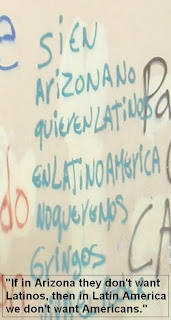 SI EN
ARIZONA NO
QUIEREN LATINOS
EN LATINO AMERICA
NO QUEREMOS
GRINGOS
"If in Arizona they don't want
Latinos, then in Latin America
we don't want Americans."